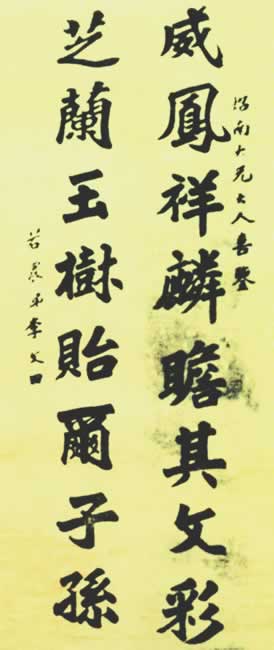 南大兄大人喜鑒
威鳳祥麟瞻其文彩
芝蘭玉樹貽爾子孫
若農弟李文田